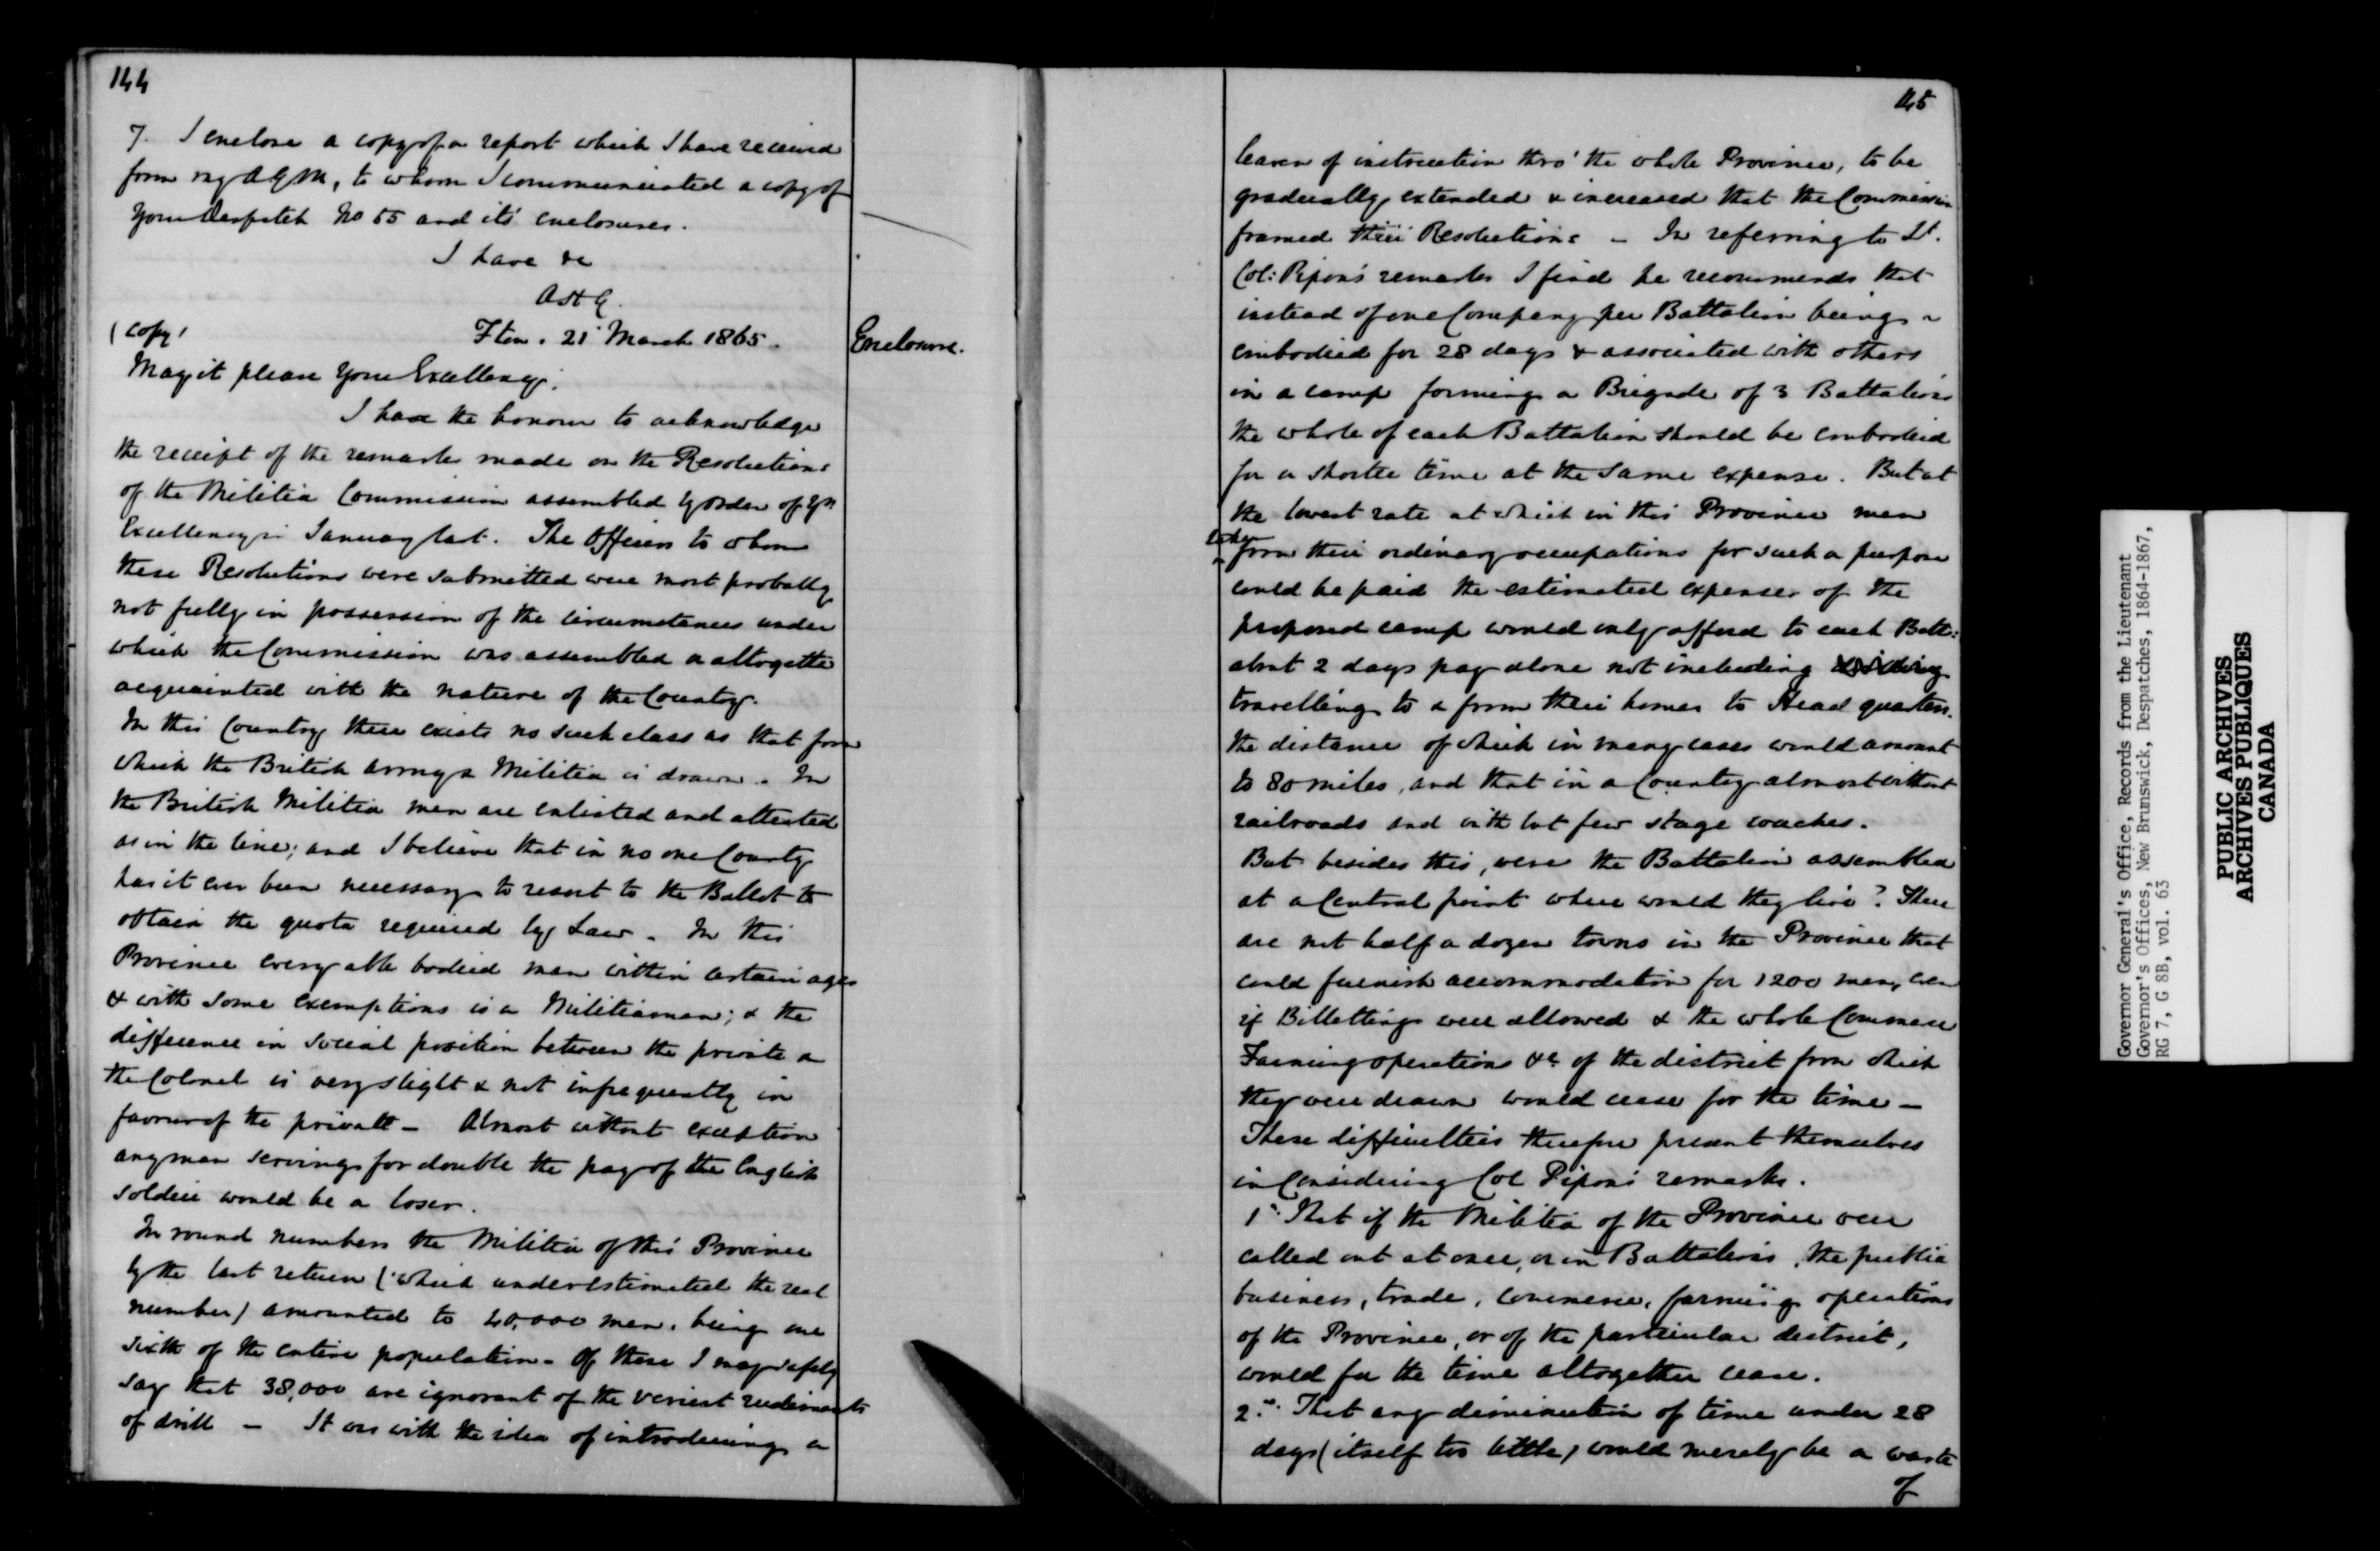 144
7. I enclose a copy of a report which I have received
form my AGM, to whom I communicated a copy of
your Despatch No 55 and its enclosures.
I have &c
AHG.
(Copy) Fton. 21 March 1865.
Enclosure.
May it please Your Excellency.
I have the honour to acknowledge
the receipt of the remarks made on the Resolutions
of the Militia Commission assembled by order of Yr
Excellency in January last. The Officers to whom
these Resolutions were submitted were most probably
not fully in possession of the circumstances under
which the Commission was assembled or altogether
acquainted with the nature of the Country.
In this Country there exists no such class as that from
which the British Army & Militia is drawn. In
the British Militia men are enlisted and attested
as in the line; and I believe that in no one County
has it ever been necessary to resort to the Ballot to
obtain the quota required by Law. In this
Province every able bodied man within certain ages
& with some exemptions is a Militiaman; & the
difference in social position between the private &
the Colonel is very slight & not infrequently in
favour of the private — Almost without exception
any man serving for double the pay of the English
soldier would be a loser.
In round numbers the Militia of this Province
by the last return (which underestimated the real
number) amounted to 40,000 men, being one
sixth of the entire population. Of these I may safely
say that 38,000 are ignorant of the veriest rudiments
of drill — It was with the idea of introducing a
145
leaven of instruction thro' the whole Province, to be
gradually extended & increased that the Commission
framed their Resolutions — In referring to Lt.
Col: Pipon's remarks I find he recommends that
instead of one Company per Battalion being
embodied for 28 days & associated with others
in a camp forming a Brigade of 3 Battalions
the whole of each Battalion should be embodied
for a shorter time at the same expense. But at
the lowest rate at which in this Province men
taken
from their ordinary occupations for such a purpose
could be paid the estimated expenses of the
proposed camp would only afford to each Batt:
about 2 days pay alone not including
travelling to & from their homes to Head quarters.
the distance of which in many cases would amount
to 80 miles, and that in a Country almost without
railroads and with but few stage coaches.
But besides this, were the Battalion assembled
at a Central point where would they live? There
are not half a dozen towns in the Province that
could furnish accommodation for 1200 men, even
if Billetting were allowed & the whole Commerce
Farming operations &c of the district from which
they were drawn would cease for the time —
These difficulties therefore present themselves
in Considering Col Pipon's remarks.
1° That if the Militia of the Province were
called out at once, or in Battalions, the public
business, trade, commerce, farming operations
of the Province, or of the particular district,
would for the time altogether cease.
2° That any diminution of time under 28
days (itself too little) would merely be a waste
of
Governor General's Office, Records from the Lieutenant
Governor's Offices, New Brunswick, Despatches, 1864-1867,
RG 7, G 8B, vol. 63
PUBLIC ARCHIVES
ARCHIVES PUBLIQUES
CANADA